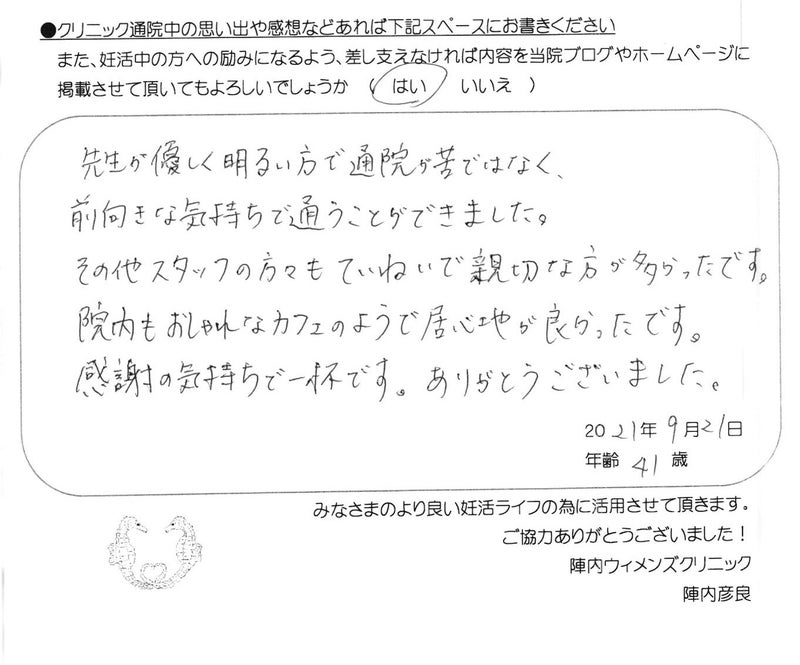 ●クリニック通院中の思い出や感想などあれば下記スペースにお書きください
また、妊活中の方への励みになるよう、差し支えなければ内容を当院ブログやホームページに
掲載させて頂いてもよろしいでしょうか （ はい いいえ ）
先生が優しく明るい方で通院が苦ではなく、
前向きな気持ちで通うことができました。
その他スタッフの方々もていねいで親切な方が多かったです。
院内もおしゃれなカフェのようで居心地が良かったです。
感謝の気持ちで一杯です。ありがとうございました。
2021年9月21日
年齢 41歳
みなさまのより良い妊活ライフの為に活用させて頂きます。
ご協力ありがとうございました！
陣内ウィメンズクリニック
陣内彦良